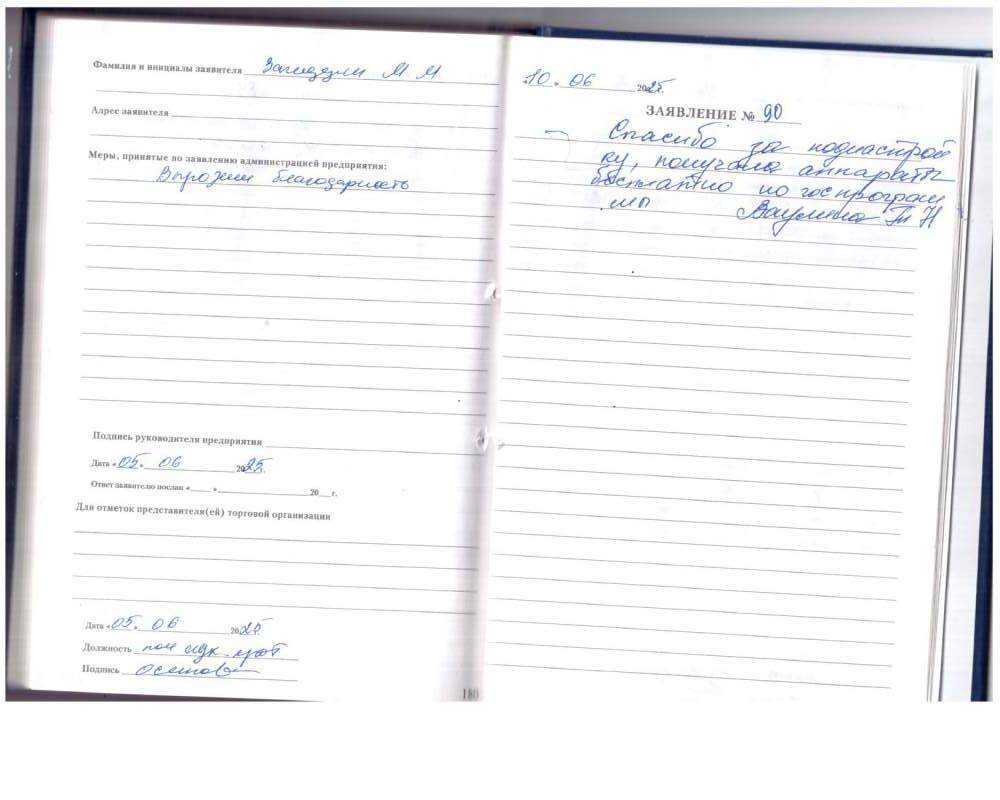 Фамилия и инициалы заявителя М М
Адрес заявителя
Меры, принятые по заявлению администрацией предприятия:
Выражени благодарность
Подпись руководителя предприятия
Дата «05» 06 2025г.
Ответ заявителю послан «___» ___ 20__ г.
Для отметок представителя(ей) торговой организации
Дата «05» 06 2025
Должность пом
Подпись
180
10. 06 2025г.
ЗАЯВЛЕНИЕ № 90
Спасибо за поднастрой
ку, получала аппараты
бесплатно по госпрограм
мы Ваулина Т Н